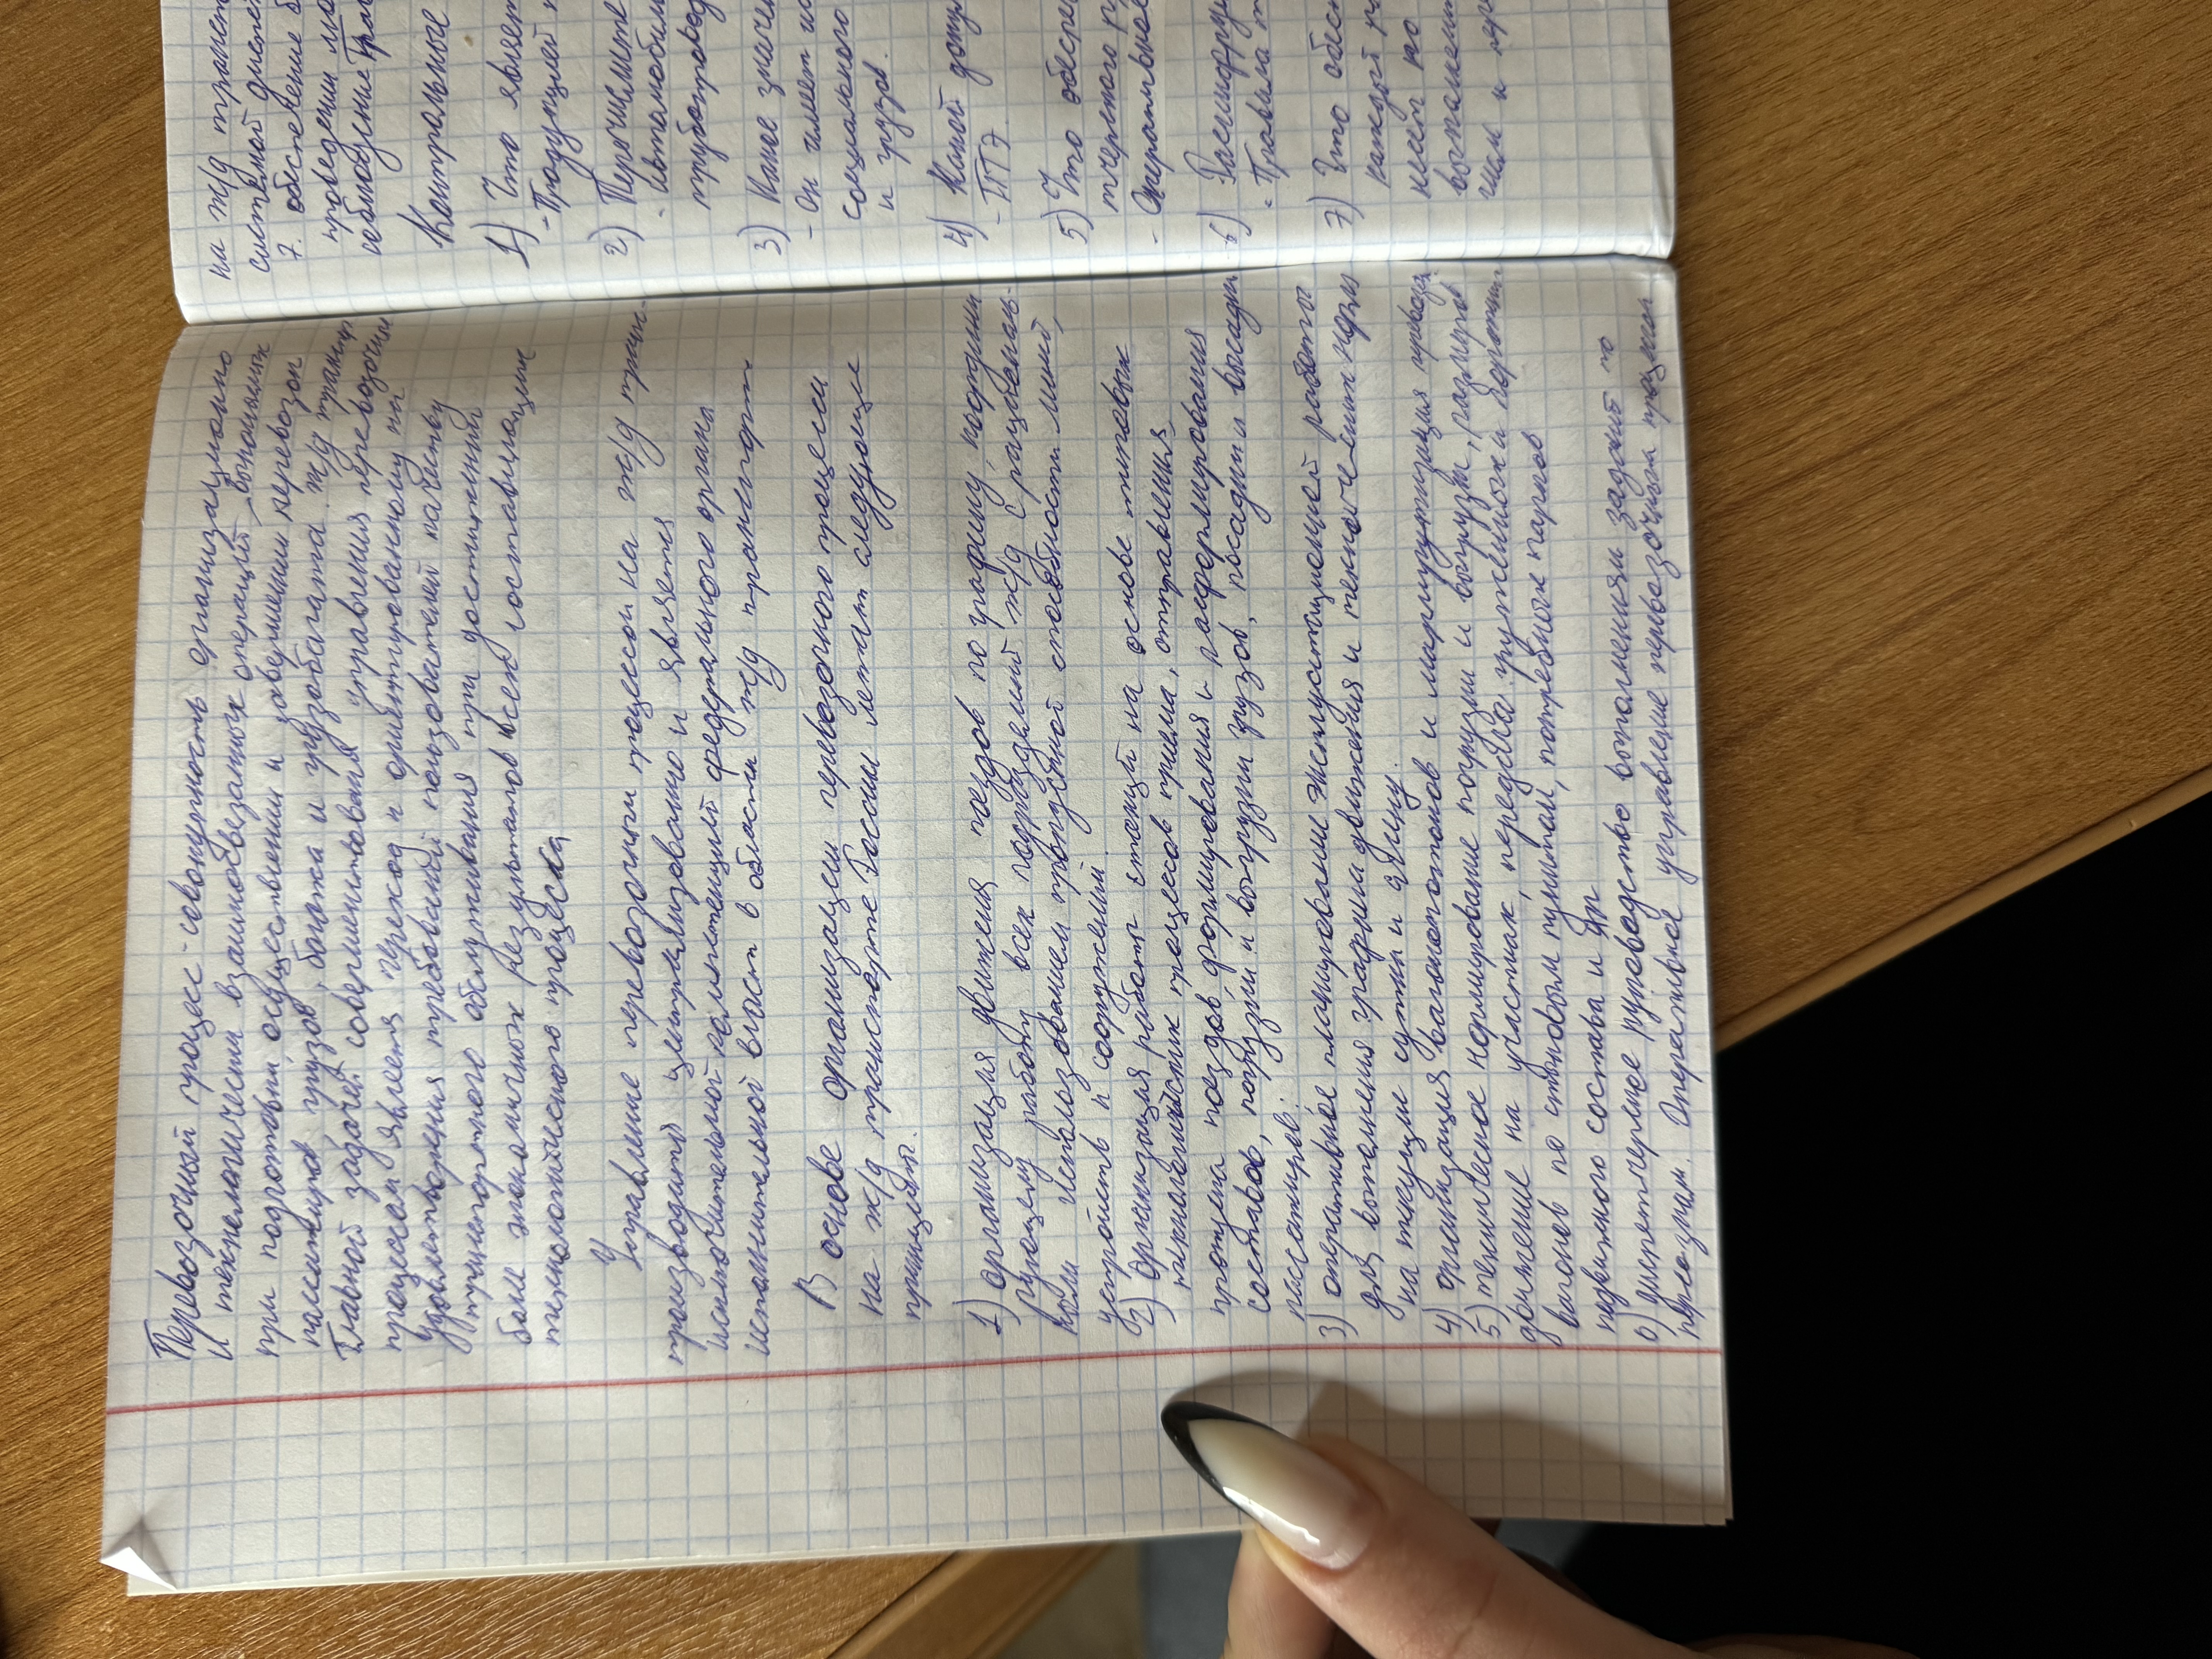 Перевозочный процесс - совокупность организационно
и технологически взаимообвезанных операций, выполняемых
при подготовки осуществлении и завершении перевозок
пассажиров грузов, богажа и грузобагажа ж/д транспорт
Главной задачей совершенствования управления перевозочны
процессом является переход к ориентированному на
удовлетворения требований пользователей качеству
транспортного обслуживания при достижений
более экономичных результатов всех составляющих
технологического процесса
Управление перевозочным процессом на ж/д тран-
производится централизованно и является
исключительной компетенцией федерального органа
исполнительной власти в области ж/д транспорта
В основе организации перевозочного процесса
на ж/д транспорте России лежат следующие
принципы.
1) организация движения поездов по графику, координи
рующему работу всех подразделений ж/д с рациональ-
использованием пропускной способности линий,
устройств и сооружений.
2) организация работы станций на основе типовых
технологических процессов приема, отправления,
пропуска поездов, формирования и расформирования
составов, погрузки и выгрузки грузов, посадки и высадки
пассажиров.
3) оперативное планирование эксплуатационной работы
для выполнения графика движения и технических норм
на текущие сутки и смену.
4) организация вагонопотоков и маршрутизация перевозок
5) техническое нормирование погрузки и выгрузки, размеров
движение на участках, передача груженых и порожних
вагонов по стыковым пунктам, потребных парков
подвижного состава и др
6) диспетчерское руководство выполнением заданий по
перевозкам. Оперативное управление перевозочным процессом
на ж/д трансп
системой диспе
7. обеспечение б
проведении
соблюдение Прав
Контрольные
1) Что являет
- Продукцией
2) Перечислите
- Автомобиль
трубопровод
3) Какое значен
- Он имеет
социального
и грузов.
4) Какой доку
- ПТЭ
5) Что обеспе
тчерского р
- Оперативное
6) Расшифруй
- Правила т
7) Что обес
каждый р
несет по
выполнен